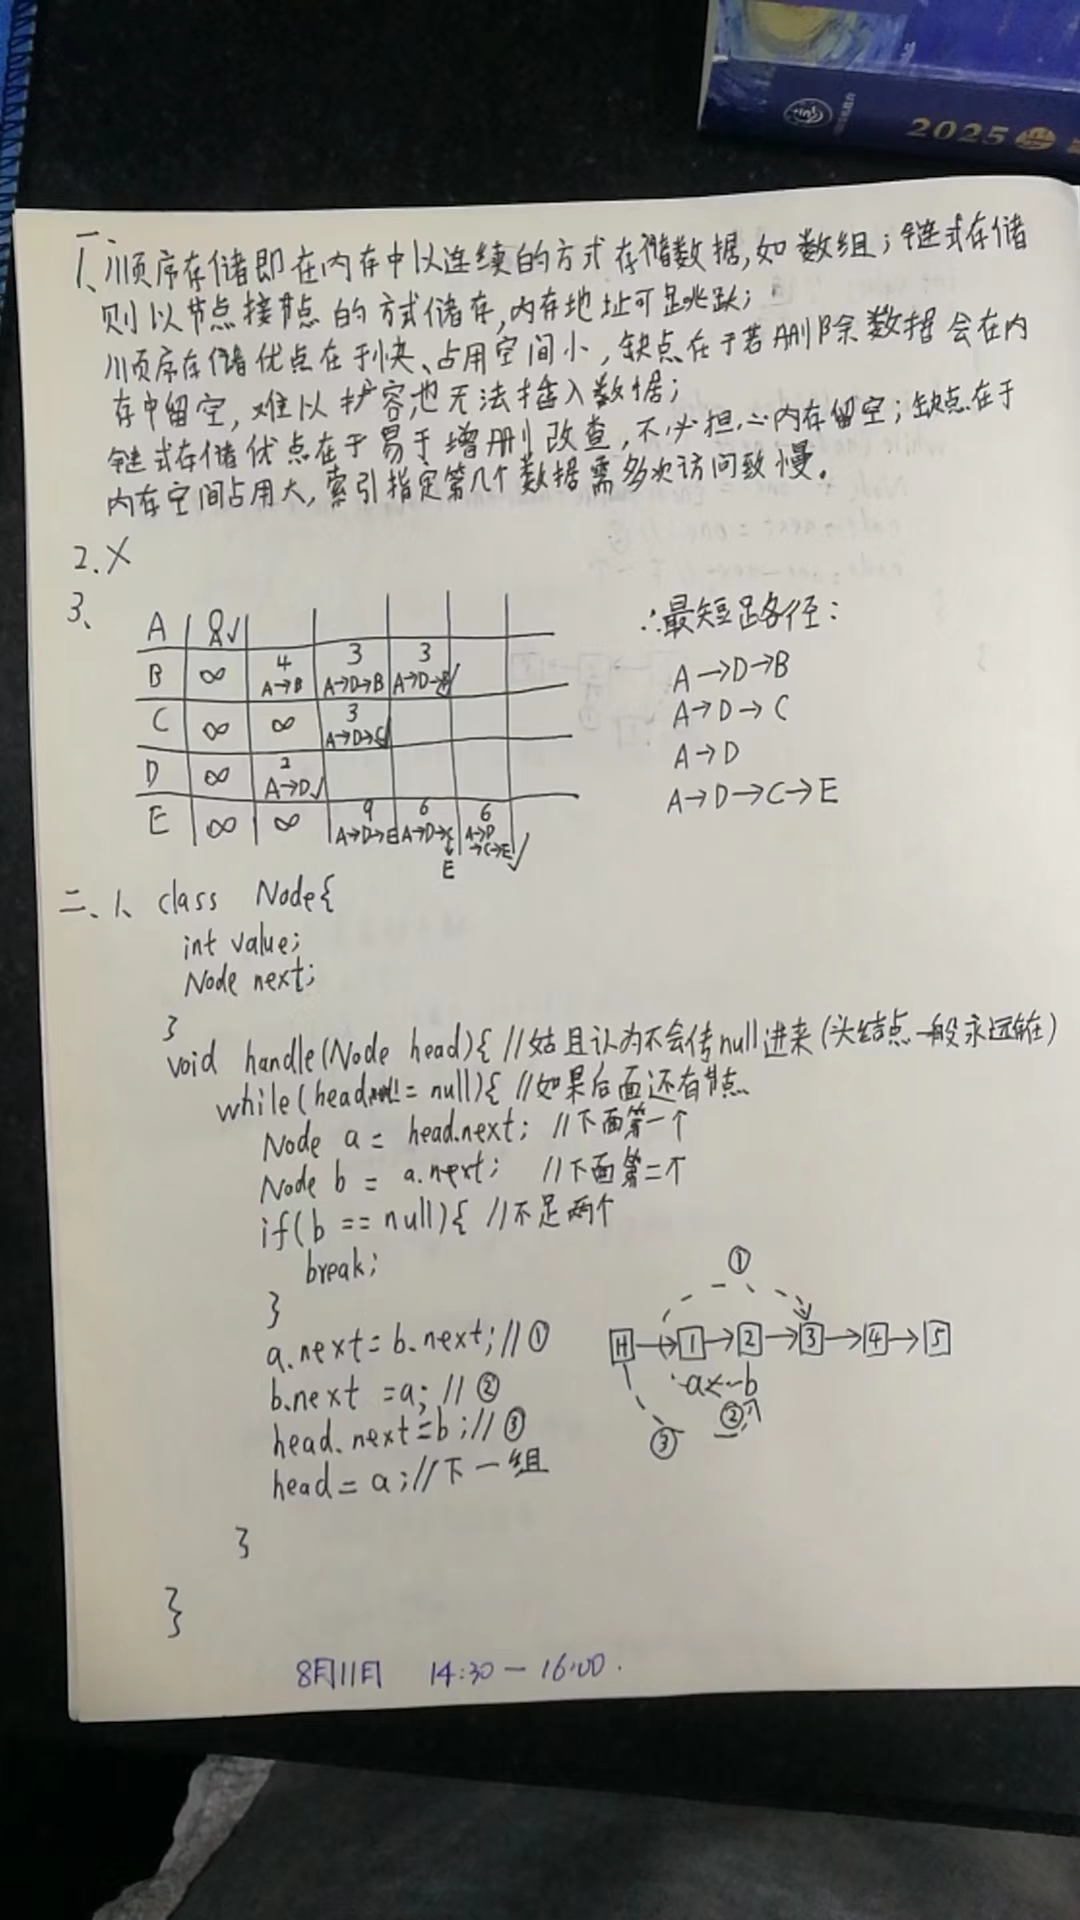 2025年
一
1、顺序存储即在内存中以连续的方式存储数据,如数组;链式存储
则以节点接节点的方式储存,内存地址可跳跃;
顺序存储优点在于快、占用空间小,缺点在于若删除数据会在内
存中留空,难以扩容,也无法插入数据;
链式存储优点在于易于增删改查,不必担心内存留空;缺点在于
内存空间占用大,索引指定第几个数据需多次访问致慢。
2.X
3、
A ✓
B ∞ 4 A→B 3 A→D→B 3 A→D→B ✓
C ∞ ∞ 3 A→D→C ✓
D ∞ 2 A→D ✓
E ∞ ∞ 9 A→D→E 6 A→D→C→E 6 A→D→C→E ✓
∴最短路径:
A→D→B
A→D→C
A→D
A→D→C→E
二、1、class Node{
int value;
Node next;
}
void handle(Node head){ //姑且认为不会传null进来(头结点一般永远在)
while(head != null){ //如果后面还有节点
Node a = head.next; //下面第一个
Node b = a.next; //下面第二个
if(b == null){ //不足两个
break;
}
a.next=b.next;//①
b.next =a; //②
head.next=b;//③
head=a;//下一组
}
}
①
H→1→2→3→4→5
a←b
②
③
8月11日 14:30—16:00.